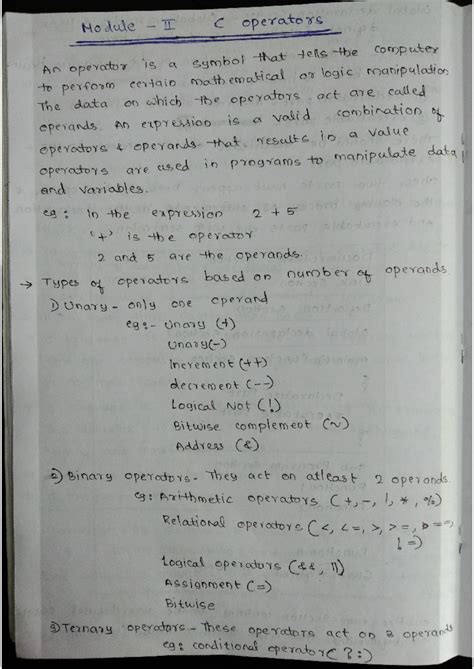 Module - II C operators
An operator is a symbol that tells the computer
to perform certain mathematical or logic manipulation
The data on which the operators act are called
operands. An expression is a valid combination of
operators & operands that results in a value
operators are used in programs to manipulate data
and variables.
eg : In the expression 2 + 5
'+' is the operator
2 and 5 are the operands.
→ Types of operators based on number of operands
1) Unary - only one operand
eg :- Unary (+)
Unary (-)
Increment (++)
decrement (--)
Logical Not (!)
Bitwise complement (~)
Address (&)
2) Binary operators - They act on atleast 2 operands.
eg : Arithmetic operators (+, -, /, *, %)
Relational operators (<, <=, >, >=, ==,
!=)
Logical operators (&&, ||)
Assignment (=)
Bitwise
3) Ternary operators - These operators act on 3 operands
eg : conditional operator (?:)